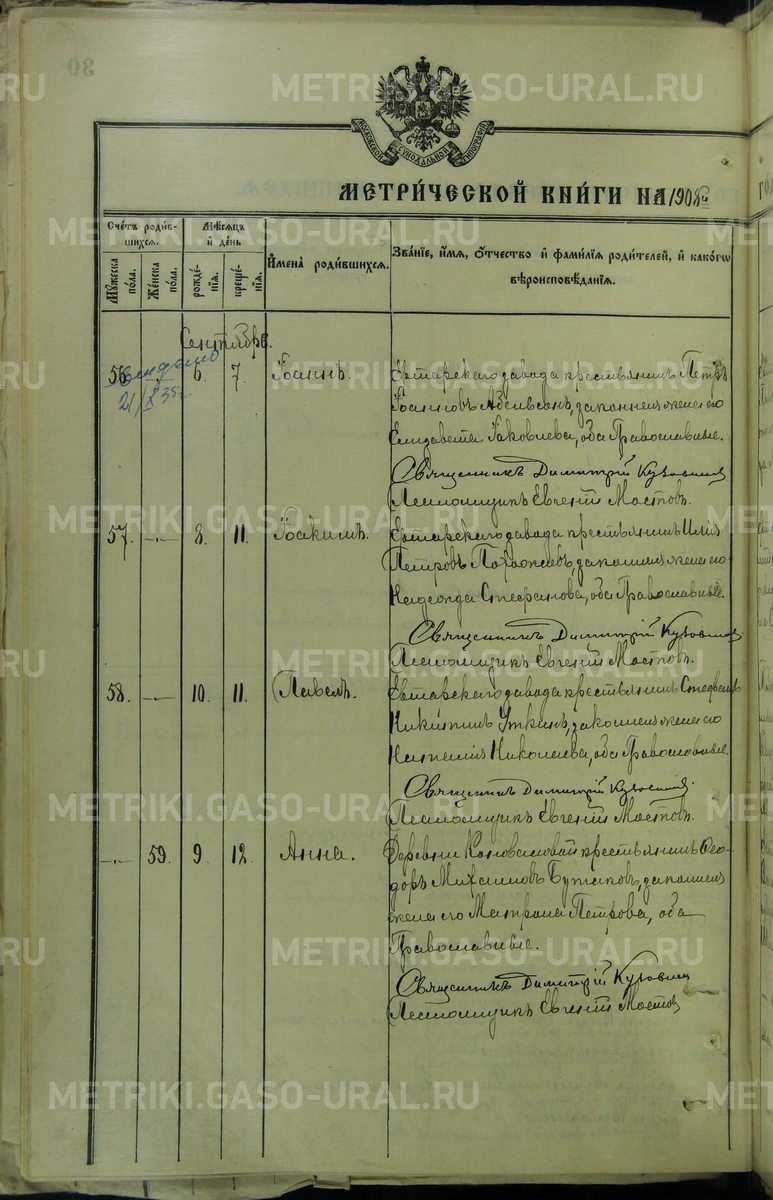 METRIKI.GASO-URAL.RU
30
МОСКОВСКОЙ СѴНОДАЛЬНОЙ ТИПОГРАФІИ
МЕТРИ́ЧЕСКОЙ КНИ́ГИ НА 1908 г.
Сче́тъ роди́вшихся.
Му́жеска по́ла.
Же́нска по́ла.
Мѣ́сяцъ и де́нь
рожде́нія.
креще́нія.
Имена̀ роди́вшихся.
Зва́ніе, и́мя, о́тчество и фами́лія роди́телей, и како́гѡ вѣроисповѣ́данія.
Сентябрь.
Выдано
21/X 35г.
56 6 7 Іоаннъ.
завода крестьянинъ Петръ
Іоанновъ законная жена его
Елизавета Іаковлева, оба Православные.
Священникъ Димитрій
Псаломщикъ Евгеній Мостовъ.
57. —„— 8. 11. Іоакимъ.
завода крестьянинъ Илія
Петровъ законная жена его
Надежда Стефанова, оба Православные.
Священникъ Димитрій
Псаломщикъ Евгеній Мостовъ.
58. —„— 10. 11. Павелъ.
завода крестьянинъ Стефанъ
Никитинъ Уткинъ, законная жена его
Николаева, оба Православные.
Священникъ Димитрій
Псаломщикъ Евгеній Мостовъ.
—„— 59. 9 12. Анна.
Деревни Коноваловой крестьянинъ Ѳео-
доръ Михаиловъ Бутаковъ, законная
жена его Матрона Петрова, оба
Православные.
Священникъ Димитрій
Псаломщикъ Евгеній Мостовъ